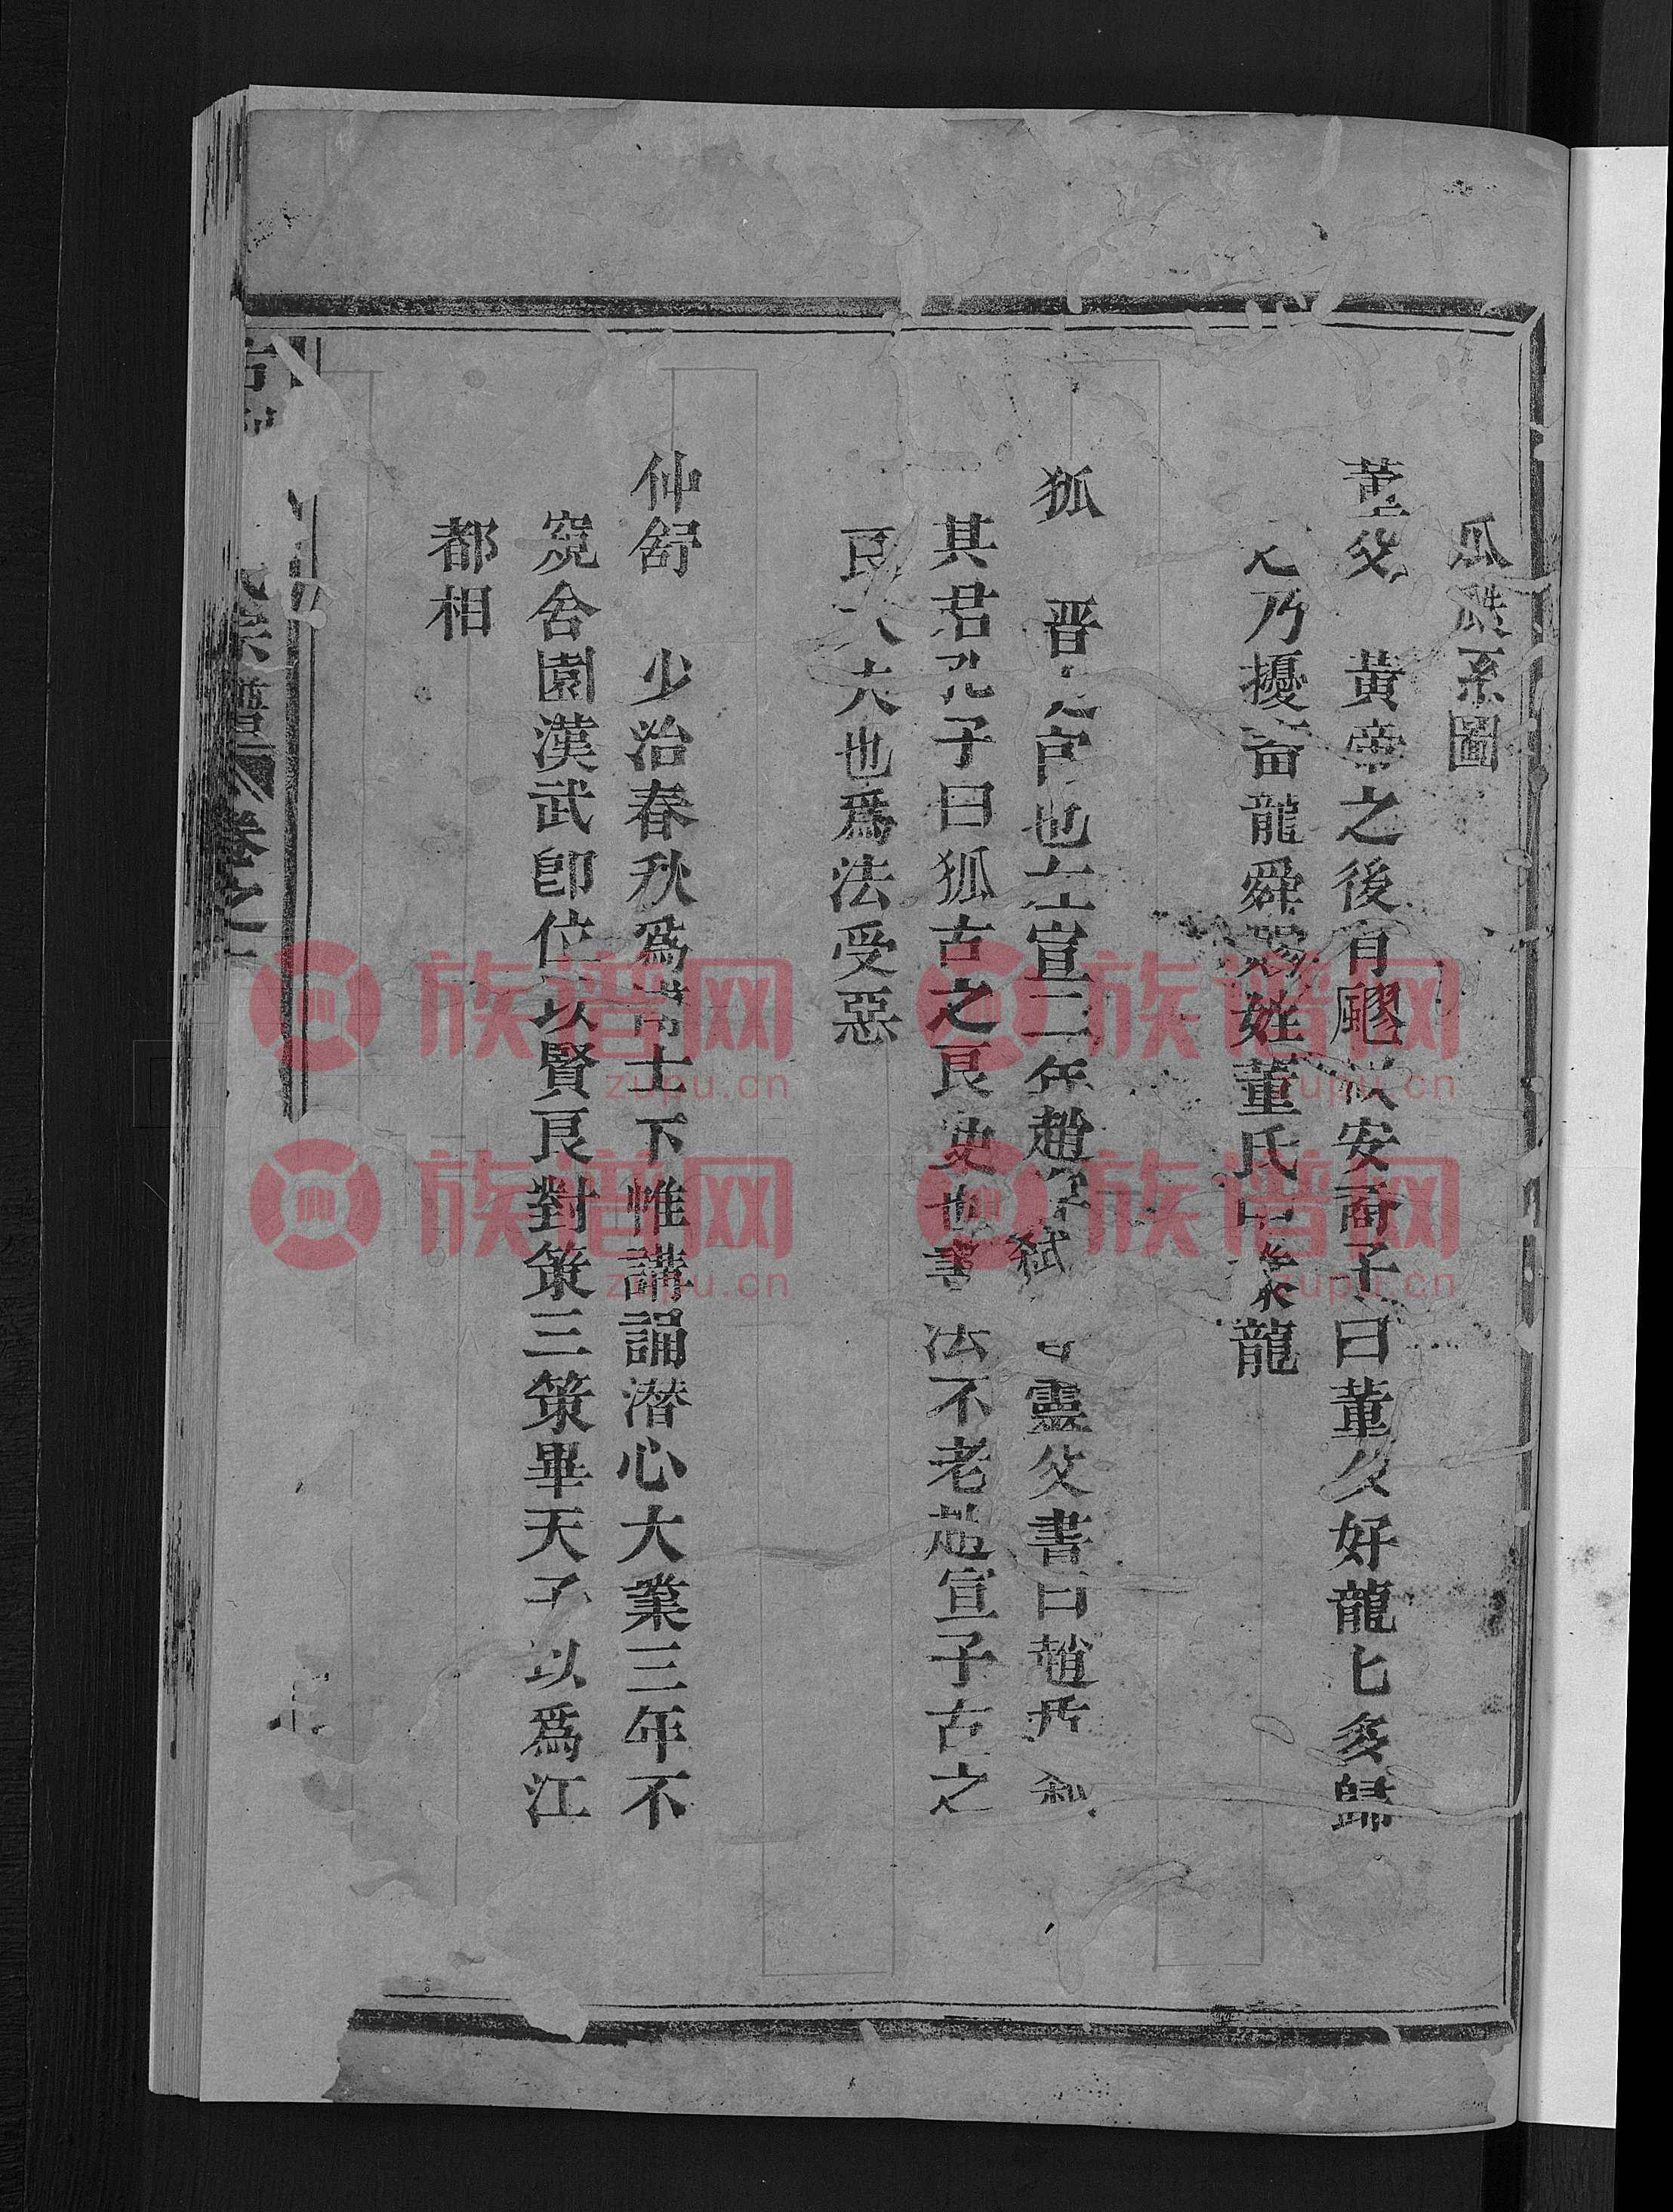 瓜瓞系圖
董父 黃帝之後有飂叔安裔子曰董父好龍匕多歸
之乃擾畜龍舜賜姓董氏曰豢龍
狐 晋之官也左宣二年趙穿弑 靈公書曰趙盾弒
其君孔子曰狐古之良史也書法不老趙宣子古之
良大夫也爲法受惡
仲舒 少治春秋爲博士下帷講誦潜心大業三年不
窺舍園漢武卽位以賢良對策三策畢天子以爲江
都相
氏宗譜 卷之
族谱网 zupu.cn
族谱网 zupu.cn
族谱网 zupu.cn
族谱网 zupu.cn